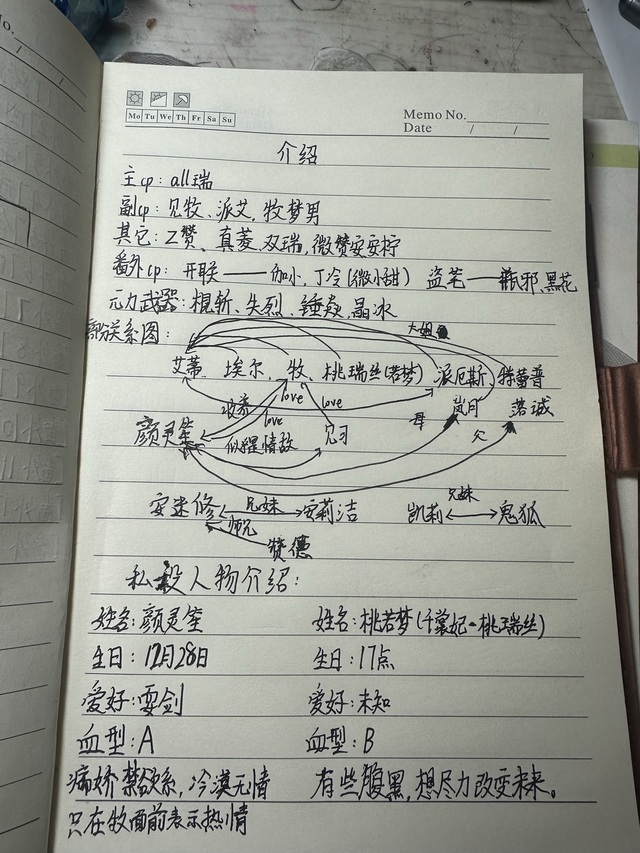 No.
Mo Tu We Th Fr Sa Su
Memo No.
Date / /
介绍
主cp：all瑞
副cp：见牧、派艾，牧梦男
其它：乙赞、真菱、双瑞，微赞安安柠
番外cp：开联——伽小，丁冷（微小甜） 盗笔——瓶邪、黑花
元力武器：棍斩、失烈、锤焱、晶冰
关系图：
大姐
艾蒂、埃尔、牧、桃瑞丝（若梦） 派厄斯 普
love love 母 岚月 落诚
颜灵笙 love 见习 父
似 情敌
安迷修 兄妹 安莉洁 凯莉 兄妹 鬼狐
师兄
赞德
私设人物介绍：
姓名：颜灵笙 姓名：桃若梦（千裳妃·桃瑞丝）
生日：12月28日 生日：17点
爱好：耍剑 爱好：未知
血型：A 血型：B
病娇禁欲系，冷漠无情 有些腹黑，想尽力改变未来。
只在牧面前表示热情